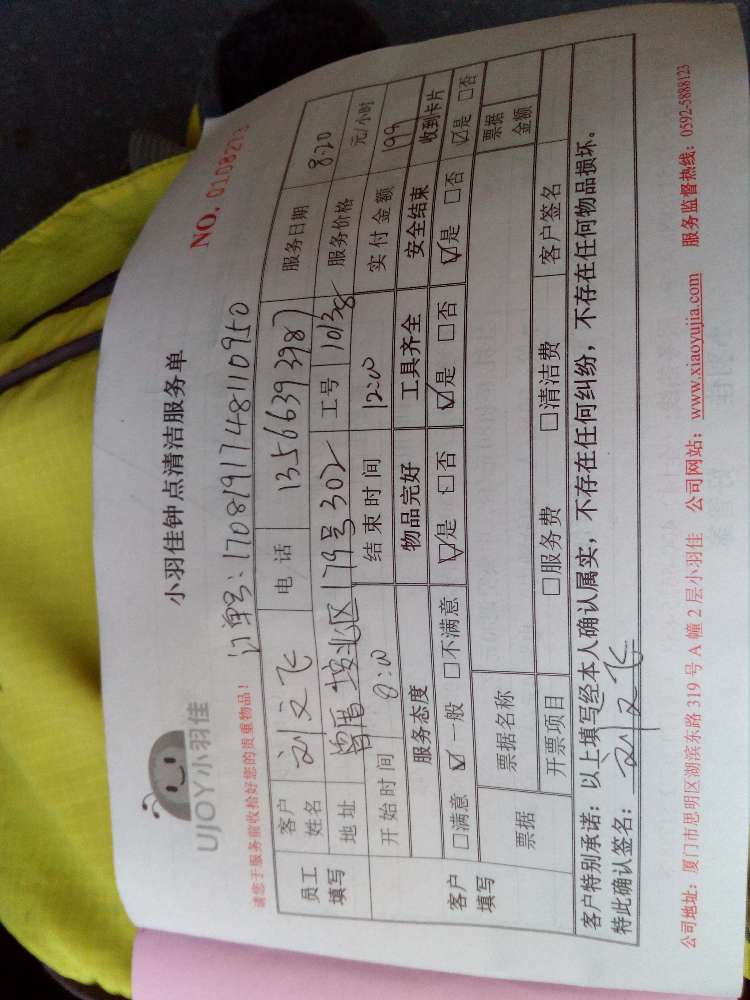 UJOY小羽佳
小羽佳钟点清洁服务单
NO. 0108273
请您于服务前收拾好您的贵重物品！
订单号：1708191748110950
员工填写 客户姓名 刘文飞 电话 13566393987 服务日期 8.20
地址 曾厝垵北区179号302 工号 10138 服务价格 元/小时
开始时间 8:00 结束时间 12:00 实付金额 199
客户填写 服务态度 物品完好 工具齐全 安全结束 收到卡片
□满意 ☑一般 □不满意 ☑是 □否 ☑是 □否 ☑是 □否 ☑是 □否
票据 票据名称 票据金额
开票项目 □服务费 □清洁费 客户签名
客户特别承诺：以上填写经本人确认属实，不存在任何纠纷，不存在任何物品损坏。
特此确认签名：刘文飞
公司地址：厦门市思明区湖滨东路319号A幢2层小羽佳 公司网站：www.xiaoyujia.com 服务监督热线：0592-5888123